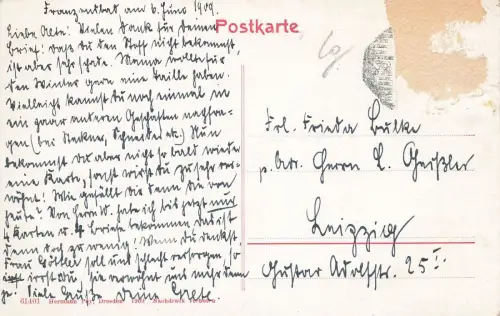 Franzensbad am 6. Juno 1909.
Liebe Grete! Vielen Dank für Deinen
Brief! daß Du den Stoff nicht bekommst,
ist aber sehr schade. Mama wollte für
den Winter gern eine Taille haben.
Vielleicht kannst Du noch einmal in
ein paar anderen Geschäften nachfra-
gen (bei Steckner, Schneider etc.) Nun
bekommst Du aber nicht so bald wieder
eine Karte, sonst wirst Du zu sehr ver-
wöhnt! Wie gefällt Dir denn die von
heute? Von habe ich bis jetzt nur
4 Karten u. 4 Briefe bekommen das ist
denn doch zu wenig! Wenn Du denkst,
Frau Güttler soll uns schlecht versorgen, so
irrst Du, sie verwöhnt uns mehr denn
je! Viele Grüße Deine Grete.
Postkarte
Frl. Frieda Bulke
p. Adr. Herrn E. Geißler
Leipzig
Gustav Adolfstr. 25 I.
61461 Hermann Dresden 1909 Nachdruck verboten